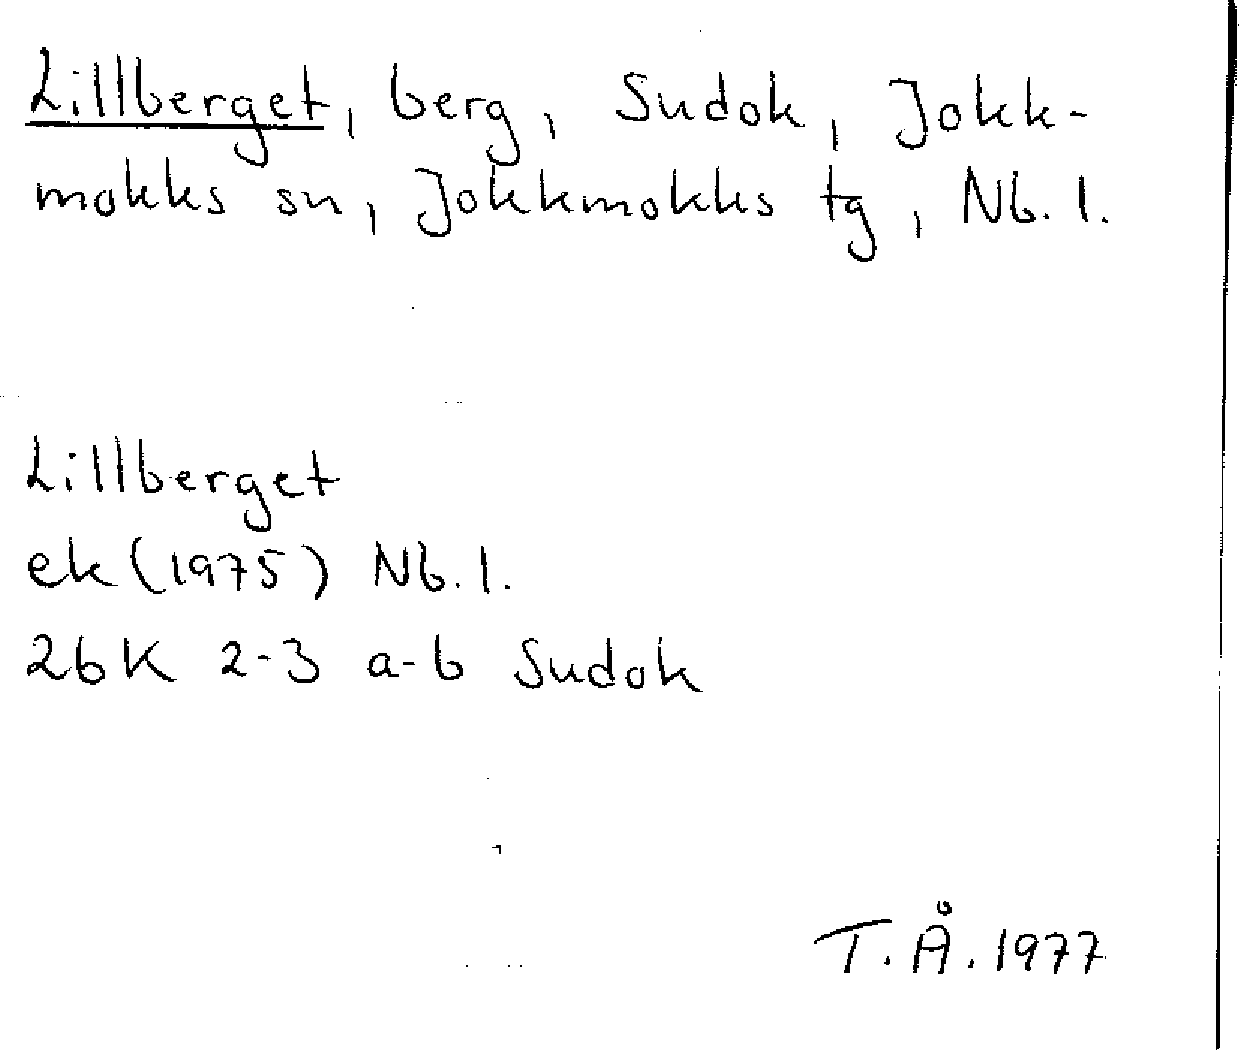 Lillberget, berg, Sudok, Jokk-
mokks sn, Jokkmokks tg, Nb. l.
Lillberget
ek (1975) Nb. l.
26K 2-3 a-b Sudok
T. Å. 1977